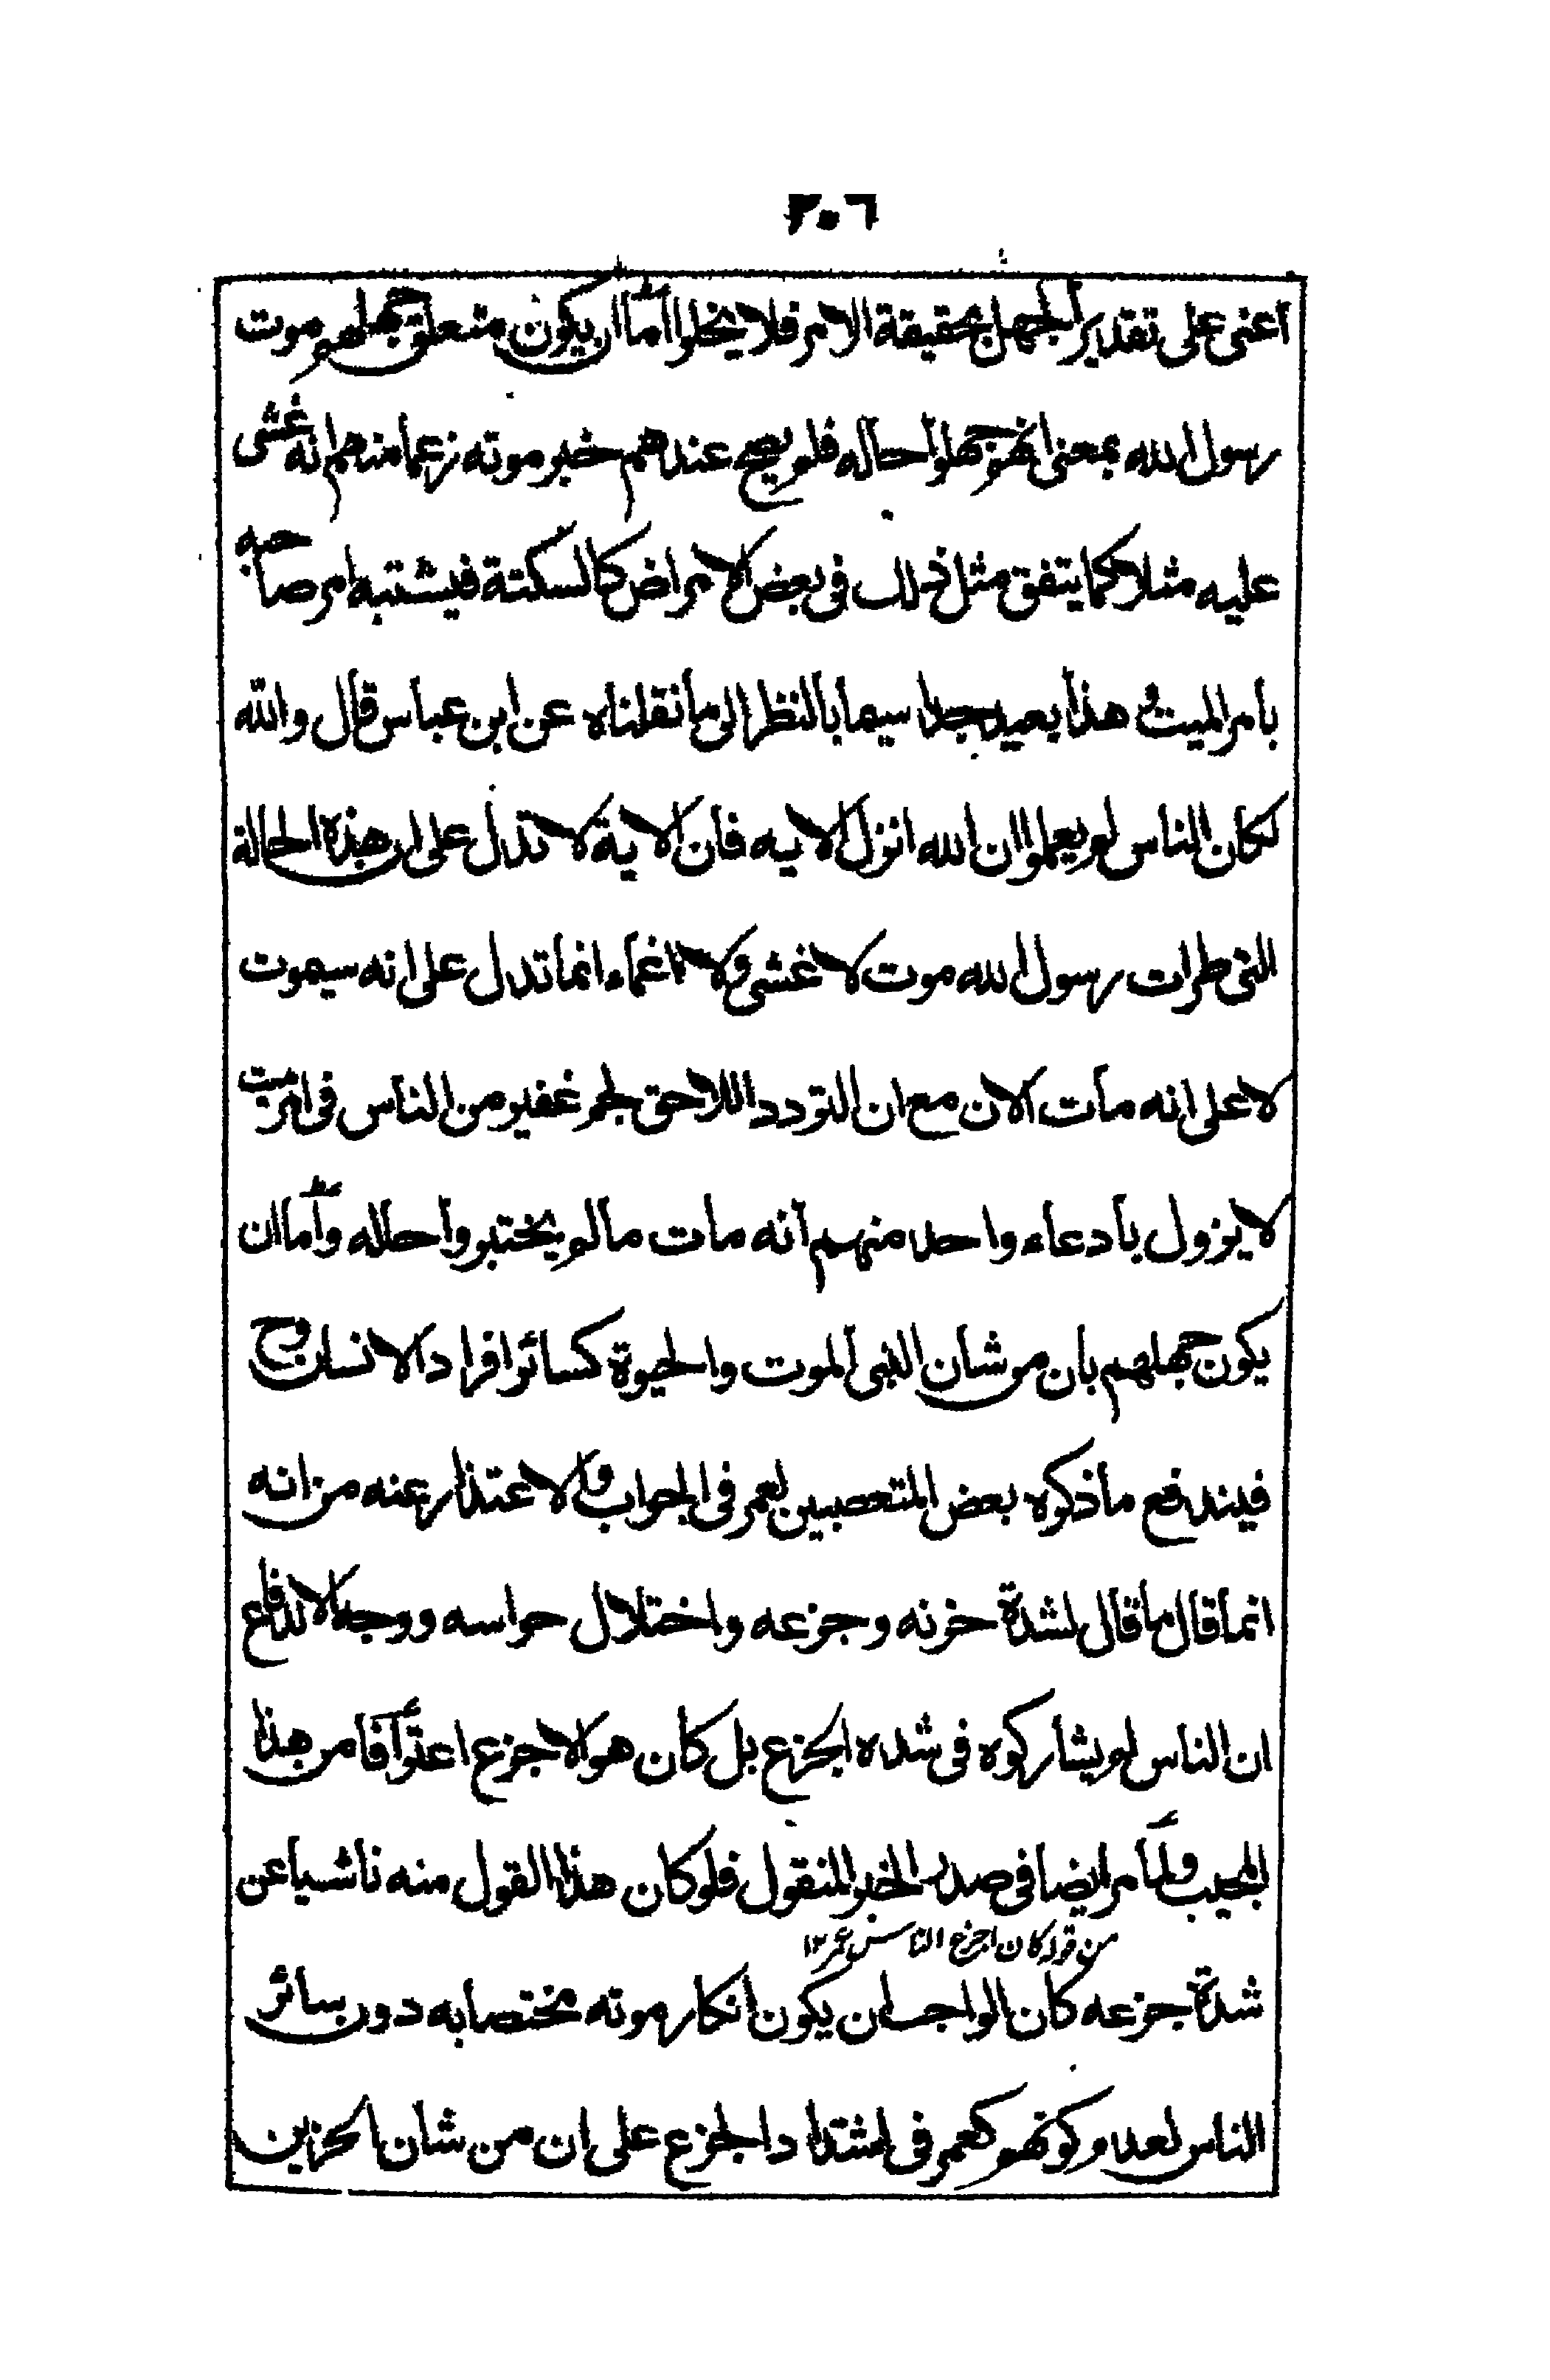 ٢٠٦
اعنى على تقدير الجهل بحقيقة الامر فلا يخلوا اما ان يكون متعلق جهلهم موت
رسول الله بمعنى انهم جهلوا حاله فلم يصح عندهم خبر موته زعما منهم انه غشى
عليه مثلا كما يتفق مثل ذلك فى بعض الامراض كالسكتة فيشتبه امر صاحبه
بامر الميت و هذا بعيد جدا سيما بالنظر الى ما نقلناه عن ابن عباس قال والله
لكان الناس لم يعلموا ان الله انزل الايه فان الاية لا تدل على ان هذه الحالة
التى طرات رسول الله موت لا غشى ولا اغماء انما تدل على انه سيموت
لا على انه مات الان مع ان التردد اللاحق لجم غفير من الناس فى امر ميت
لا يزول بادعاء واحد منهم انه مات ما لم يختبروا حاله واما ان
يكون جهلهم بان من شان النبى الموت والحيوة كسائر افراد الانسان وح
فيندفع ما ذكره بعض المتعصبين لعمر فى الجواب والاعتذار عنه من انه
انما قال ما قال لشدة حزنه وجزعه واختلال حواسه ووجه الاندفاع
ان الناس لم يشاركوه فى شده الجزع بل كان هو الاجزع اعترافا من هذا
المجيب ولما مر ايضا فى صدر الخبر المنقول فلو كان هذا القول منه ناشيا عن
من قوله كان اجزع الناس عمر ١٢
شدة جزعه كان الواجب ان يكون انكار موته مختصا به دون سائر
الناس لعدم كونهم كعمر فى اشتداد الجزع على ان من شان الحزين